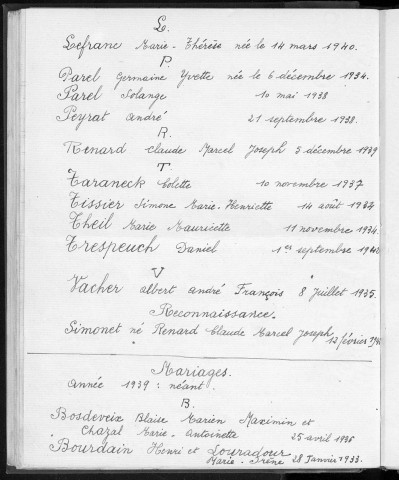 L.
Lefranc Marie-Thérèse née le 14 mars 1940.
P.
Parel Germaine Yvette née le 6 décembre 1934.
Parel Solange 10 mai 1938
Peyrat André 21 septembre 1938.
R.
Renard Claude Marcel Joseph 5 décembre 1939
T.
Taraneck Colette 10 novembre 1937
Tissier Simone Marie-Henriette 14 août 1934
Theil Marie Mauricette 11 novembre 1934.
Trespeuch Daniel 1er septembre
V
Vacher Albert André François 8 Juillet 1935.
Reconnaissance.
Simonet né Renard Claude Marcel Joseph
12 février
Mariages.
Année 1939 : néant.
B.
Bosdeveix Blaise Marien Maximin et
Chazal Marie-Antoinette 25 avril 1936
Bourdain Henri et Louradour
Marie-Irène 28 Janvier 1933.